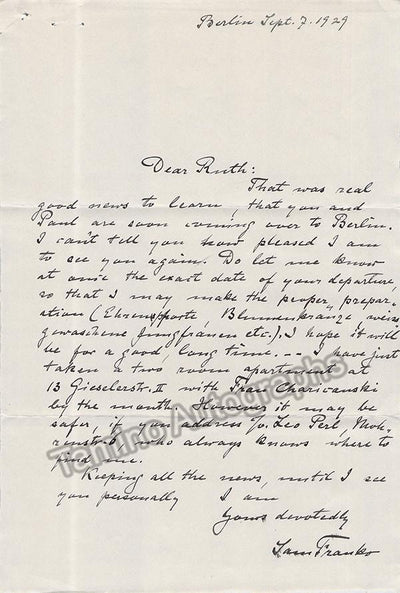 Berlin Sept. 7. 1929
Dear Ruth:
That was real
good news to learn, that you and
Paul are soon coming over to Berlin.
I can't tell you how pleased I am
to see you again. Do let me know
at once the exact date of your departure,
so that I may make the proper prepar-
ation (Ehrenpforte, Blumenkränze weiss
gewaschene Jungfrauen etc.). I hope it will
be for a good, long time. -- I have just
taken a two room apartment at
13 Gieselerstr. II with Frau
by the month. However it may be
safer, if you address c/o. Leo Perl,
who always knows where to
find me.
Keeping all the news, until I see
you personally I am
Yours devotedly
Sam Franko
Tamino Autographs